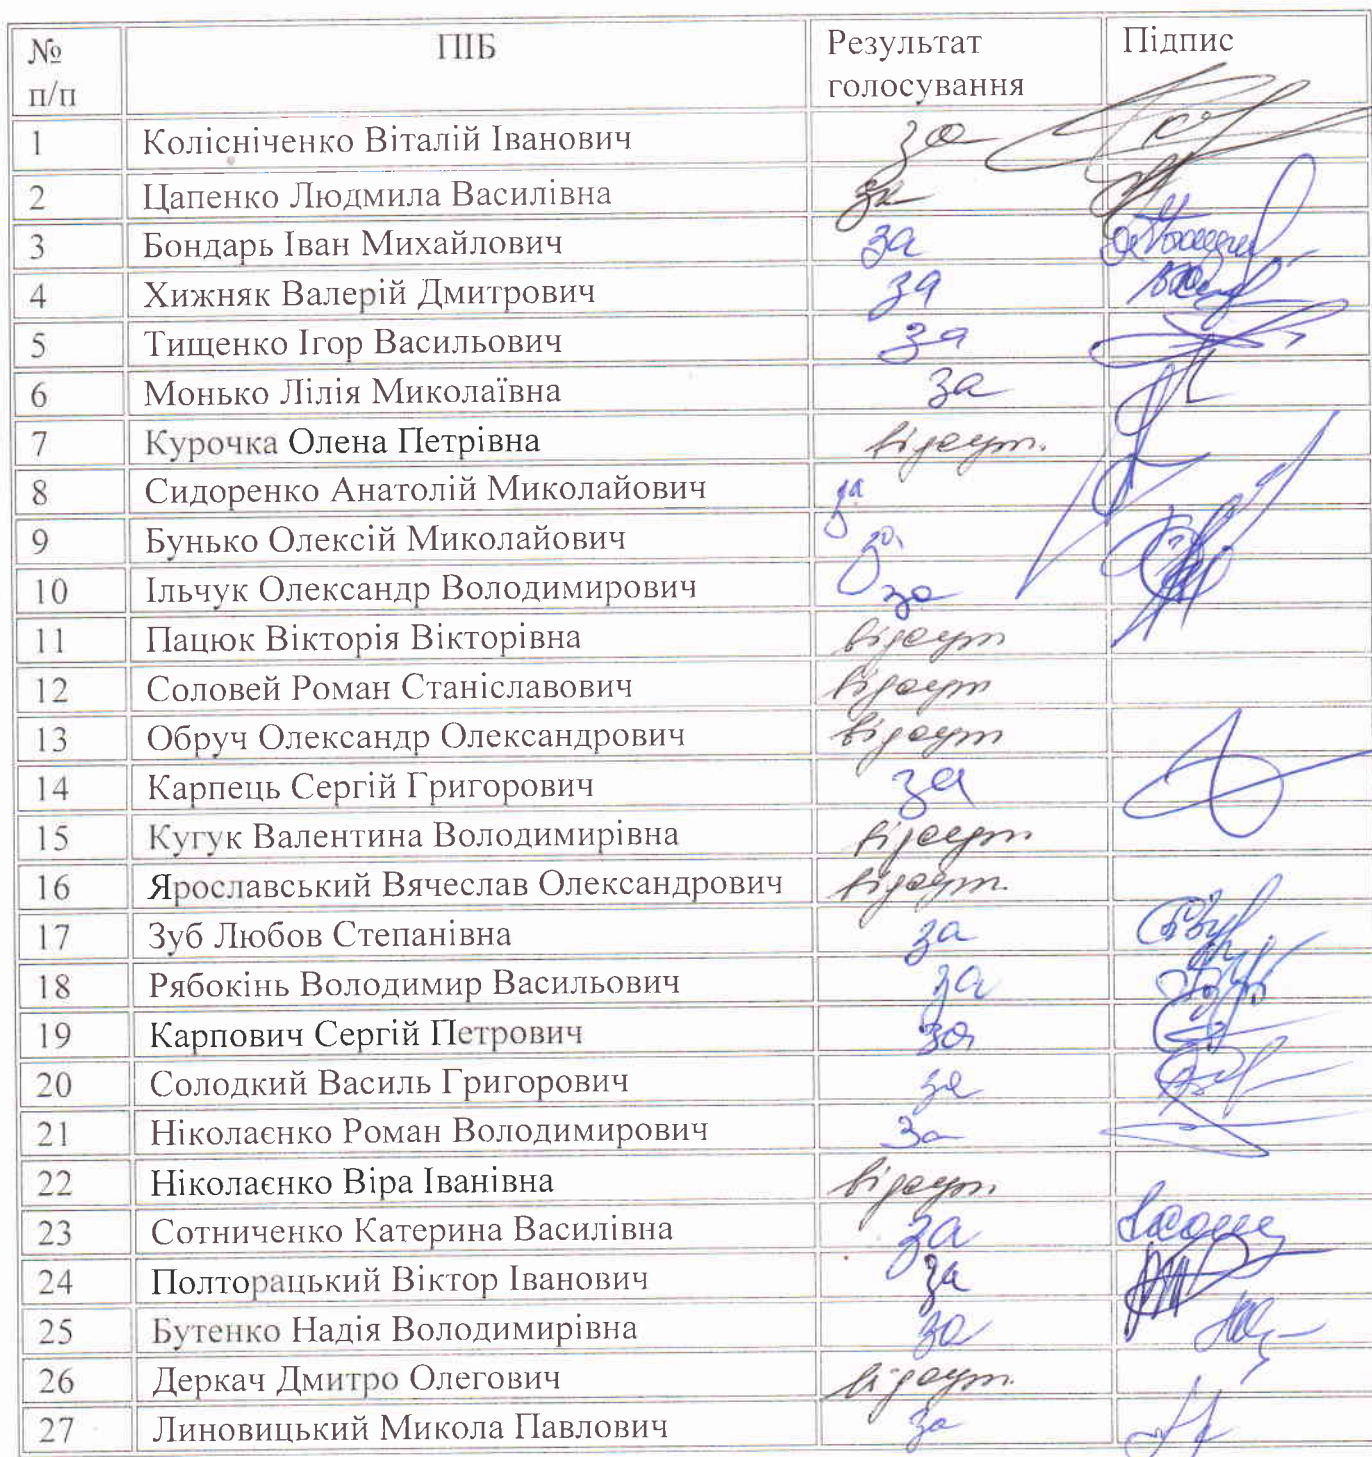 № п/п ПІБ Результат голосування Підпис
1 Колісніченко Віталій Іванович за
2 Цапенко Людмила Василівна за
3 Бондарь Іван Михайлович за
4 Хижняк Валерій Дмитрович за
5 Тищенко Ігор Васильович за
6 Монько Лілія Миколаївна за
7 Курочка Олена Петрівна відсут.
8 Сидоренко Анатолій Миколайович за
9 Бунько Олексій Миколайович за
10 Ільчук Олександр Володимирович за
11 Пацюк Вікторія Вікторівна відсут
12 Соловей Роман Станіславович відсут
13 Обруч Олександр Олександрович відсут
14 Карпець Сергій Григорович за
15 Кугук Валентина Володимирівна відсут
16 Ярославський Вячеслав Олександрович відсут.
17 Зуб Любов Степанівна за
18 Рябокінь Володимир Васильович за
19 Карпович Сергій Петрович за
20 Солодкий Василь Григорович за
21 Ніколаєнко Роман Володимирович За
22 Ніколаєнко Віра Іванівна відсут.
23 Сотниченко Катерина Василівна за
24 Полторацький Віктор Іванович за
25 Бутенко Надія Володимирівна за
26 Деркач Дмитро Олегович відсут.
27 Линовицький Микола Павлович за